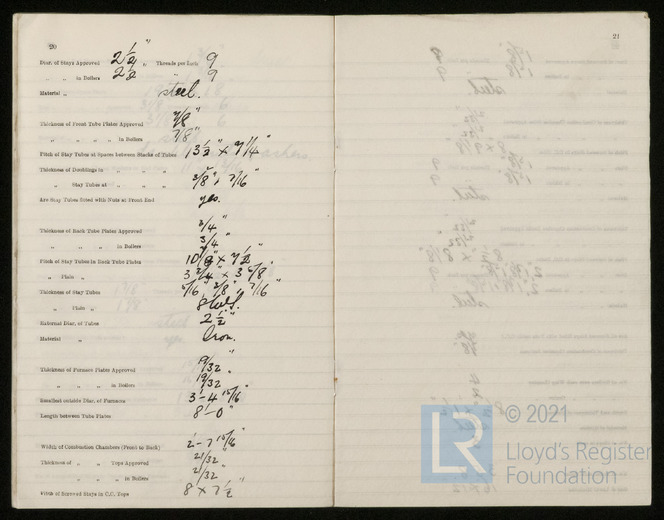 20
Diar. of Stays Approved 2 1/2" „ Threads per Inch 9
„ „ in Boilers 2 1/2 „ 9
Material „ steel.
Thickness of Front Tube Plates Approved 7/8"
„ „ „ „ in Boilers 7/8"
Pitch of Stay Tubes at Spaces between Stacks of Tubes 13 1/2" × 9 1/4"
Thickness of Doublings in „ „ „ „
„ Stay Tubes at „ „ „ 3/8" & 7/16"
Are Stay Tubes fitted with Nuts at Front End yes.
Thickness of Back Tube Plates Approved 3/4"
„ „ „ „ in Boilers 3/4"
Pitch of Stay Tubes in Back Tube Plates
„ Plain „ 3 3/4" × 3 5/8"
Thickness of Stay Tubes 5/16" 3/8" & 7/16"
„ Plain „
External Diar. of Tubes 2 1/2"
Material „ Iron.
Thickness of Furnace Plates Approved 19/32"
„ „ „ in Boilers 19/32"
Smallest outside Diar. of Furnaces 3'-4 15/16"
Length between Tube Plates 8'-0"
Width of Combustion Chambers (Front to Back) 2'-7 15/16"
Thickness of „ „ Tops Approved 21/32"
„ „ „ „ in Boilers 21/32"
Pitch of Screwed Stays in C.C. Tops 8 × 7 1/2"
21
LR © 2021
Lloyd's Register
Foundation